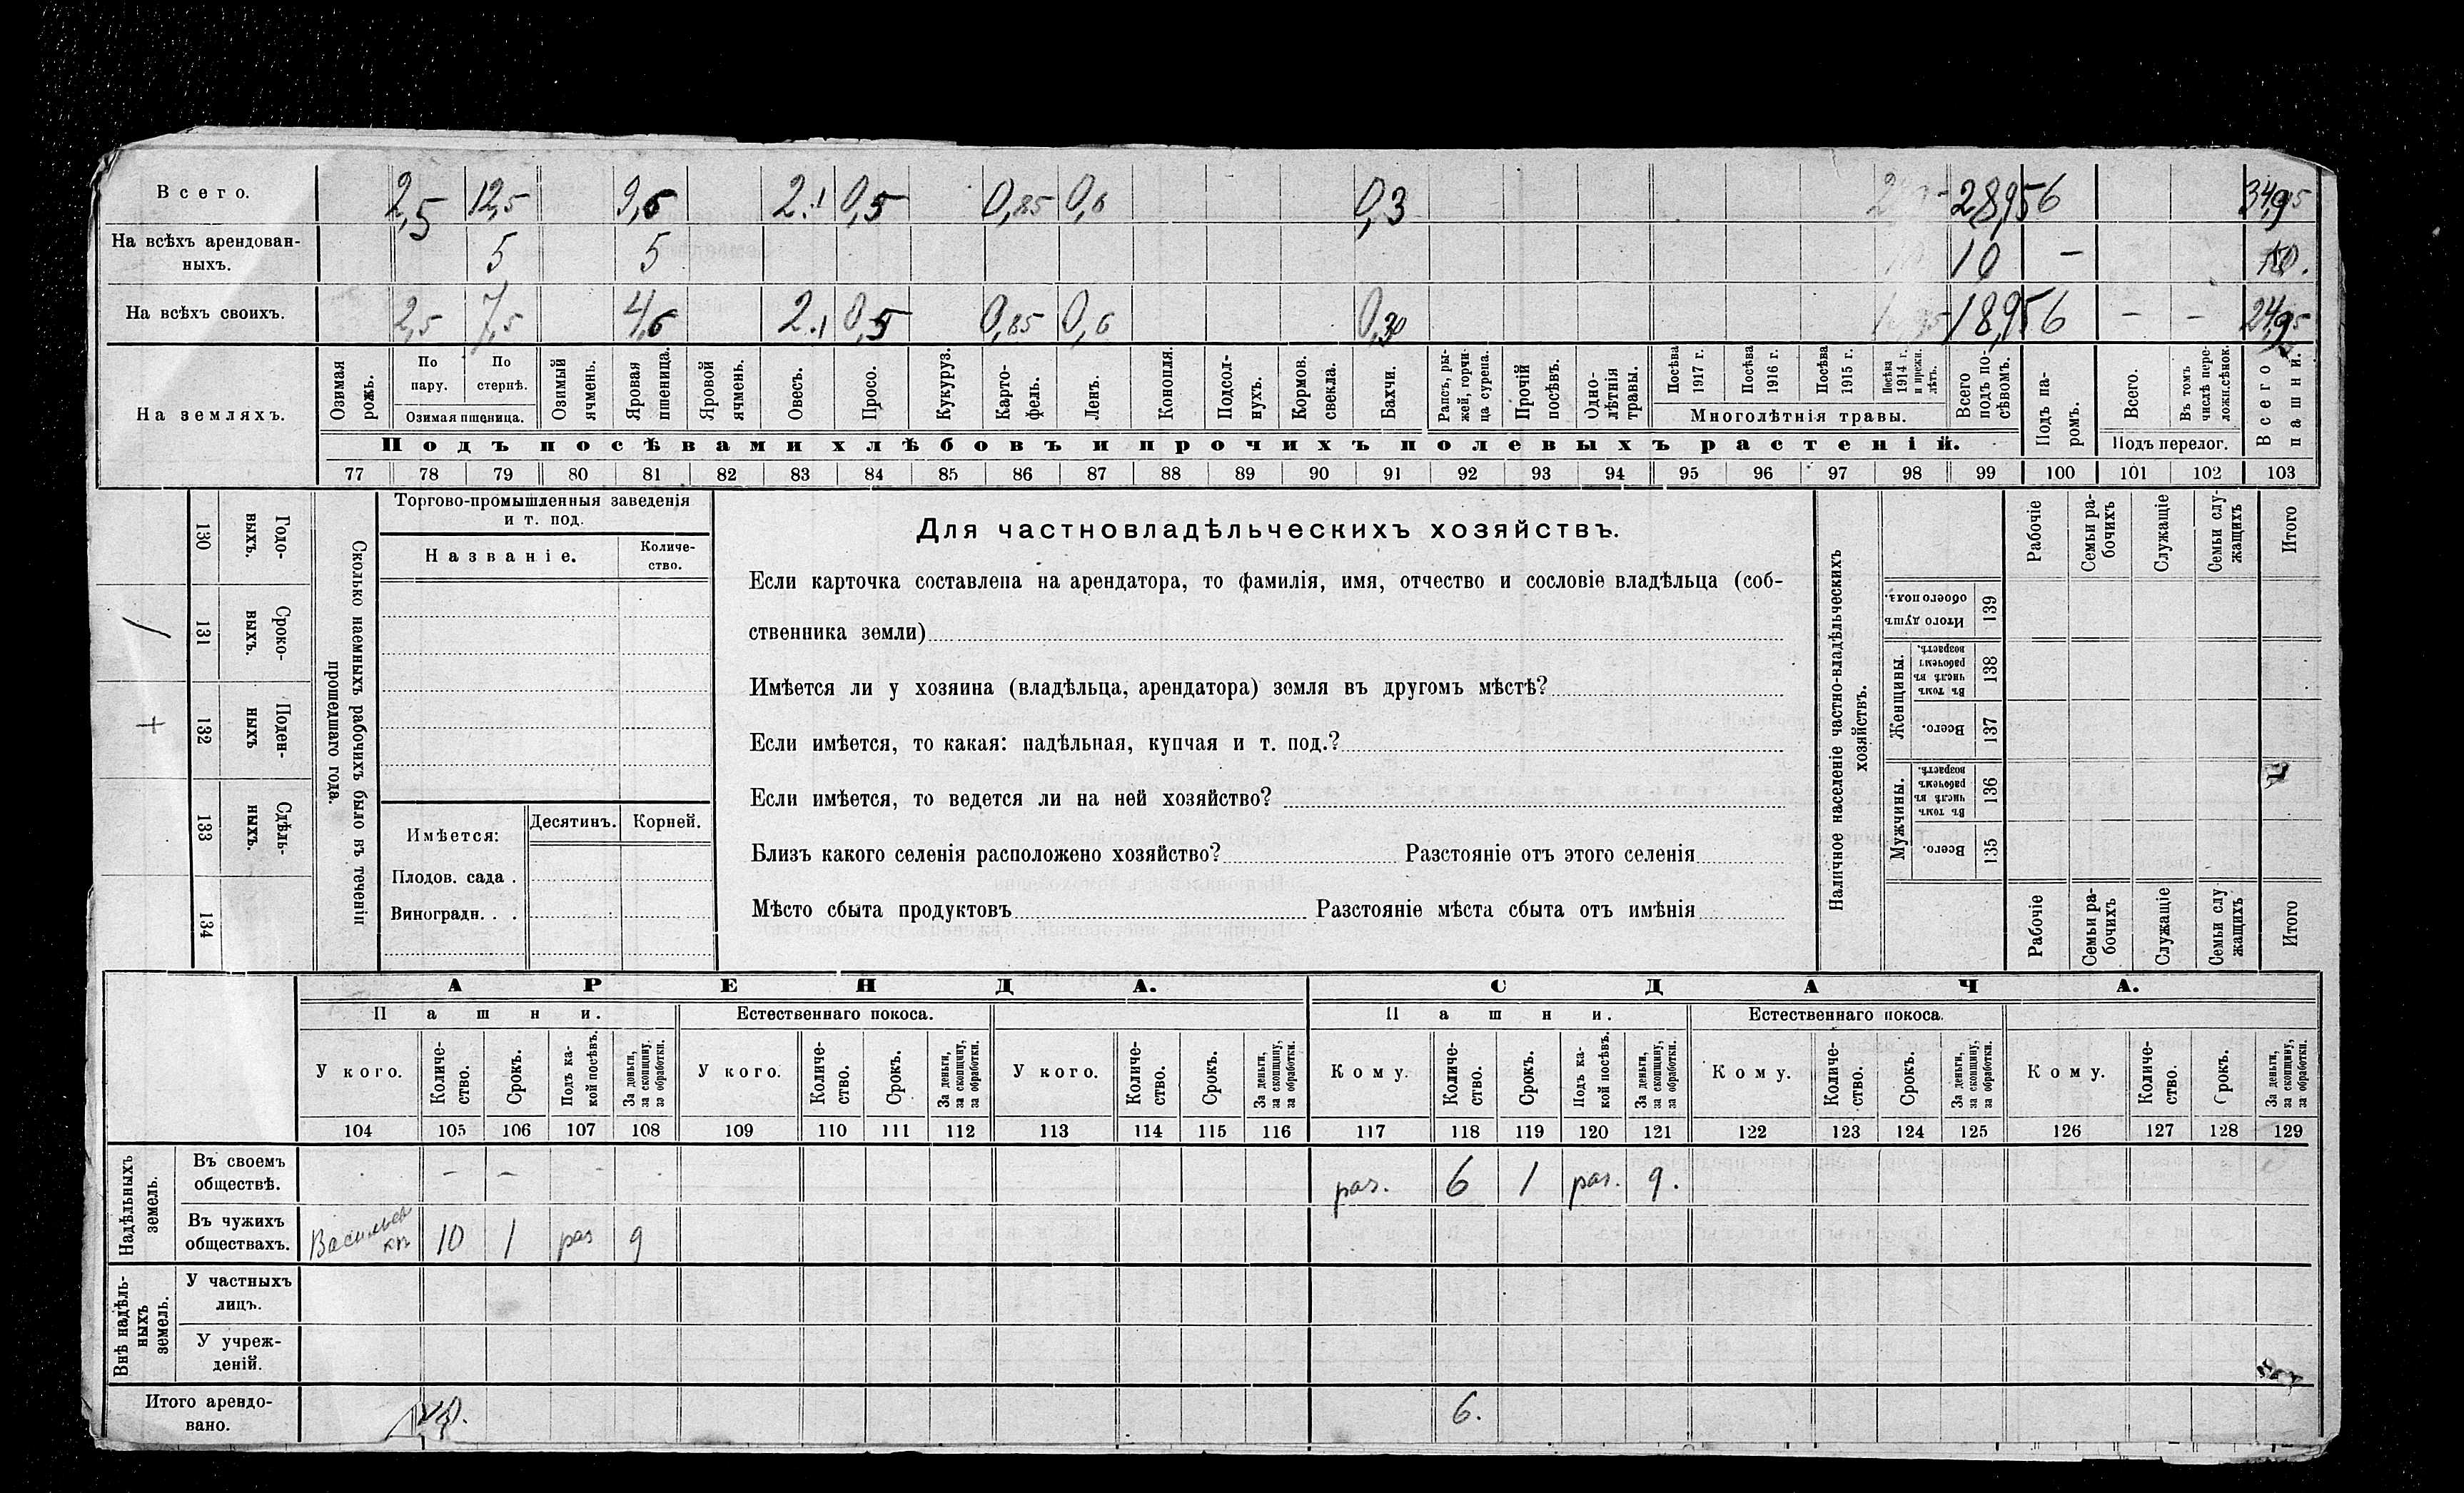 Всего. 2,5 12,5 9,6 2.1 0,5 0,85 0,6 0,3 28,95 6 34,95
На всѣхъ арендован-
ныхъ. 5 5 10 — 10.
На всѣхъ своихъ. 2,5 7,5 4,6 2.1 0,5 0,85 0,6 0,30 18,95 6 — — 24,95
На земляхъ.
Озимая рожь.
По пару.
По стернѣ.
Озимая пшеница.
Озимый ячмень.
Яровая пшеница.
Яровой ячмень.
Овесъ.
Просо.
Кукуруз.
Карто-
фель.
Ленъ.
Конопля.
Подсол-
нухъ.
Кормов. свекла.
Бахчи.
Рапсъ, ры-
жей, горчи-
ца сурепа.
Прочій посѣвъ.
Одно-
лѣтнія травы.
Посѣва 1917 г.
Посѣва 1916 г.
Посѣва 1915 г.
Посѣва 1914 г. и прежн. лѣтъ.
Многолѣтнія травы.
Всего подъ по-
сѣвомъ.
Подъ па-
ромъ.
Всего.
Въ томъ числѣ пере-
ложн.сѣнок.
Подъ перелог.
Всего пашни.
Подъ посѣвами хлѣбовъ и прочихъ полевыхъ растеній.
77 78 79 80 81 82 83 84 85 86 87 88 89 90 91 92 93 94 95 96 97 98 99 100 101 102 103
130 Годо-
выхъ.
/ 131 Сроко-
ныхъ.
+ 132 Поден-
ныхъ
133 Сдѣль-
ныхъ.
134
Сколько наемныхъ рабочихъ было въ теченіи
прошедшаго года.
Торгово-промышленныя заведенія
и т. под.
Названіе.
Количе-
ство.
Имѣется:
Десятинъ. Корней.
Плодов. сада .
Виноградн. . .
Для частновладѣльческихъ хозяйствъ.
Если карточка составлена на арендатора, то фамилія, имя, отчество и сословіе владѣльца (соб-
ственника земли)
Имѣется ли у хозяина (владѣльца, арендатора) земля въ другомъ мѣстѣ?
Если имѣется, то какая: надѣльная, купчая и т. под.?
Если имѣется, то ведется ли на ней хозяйство?
Близъ какого селенія расположено хозяйство? Разстояніе отъ этого селенія
Мѣсто сбыта продуктовъ Разстояніе мѣста сбыта отъ имѣнія
Наличное населеніе частно-владѣльческихъ
хозяйствъ.
Рабочіе
Семьи ра-
бочихъ
Служащіе
Семьи слу-
жащихъ
Итого
Итого душъ обоего пола. 139
Женщины.
Въ томъ числѣ въ рабочемъ возрастѣ. 138
Всего. 137
Мужчины.
Въ томъ числѣ въ рабочемъ возрастѣ. 136
Всего. 135
Рабочіе
Семьи ра-
бочихъ
Служащіе
Семьи слу
жащихъ
Итого
АРЕНДА. СДАЧА.
Пашни. Естественнаго покоса. Пашни. Естественнаго покоса.
У кого.
Количе-
ство.
Срокъ.
Подъ ка-
кой посѣвъ.
За деньги, за скопщину, за обработки.
У кого.
Количе-
ство.
Срокъ.
За деньги, за скопщину, за обработки.
У кого.
Количе-
ство.
Срокъ.
За деньги, за скопщину, за обработки.
Кому.
Количе-
ство.
Срокъ.
Подъ ка-
кой посѣвъ.
За деньги, за скопщину, за обработки.
Кому.
Количе-
ство.
Срокъ.
За деньги, за скопщину, за обработки.
Кому.
Количе-
ство.
Срокъ.
За деньги, за скопщину, за обработки.
104 105 106 107 108 109 110 111 112 113 114 115 116 117 118 119 120 121 122 123 124 125 126 127 128 129
Надѣльныхъ
земель.
Въ своемъ
обществѣ. — — раз. 6 1 раз. 9.
Въ чужихъ
обществахъ. 10 1 раз 9
Внѣ надѣль-
ныхъ
земель.
У частныхъ
лицъ.
У учреж-
деній.
Итого арендо-
вано. 6.